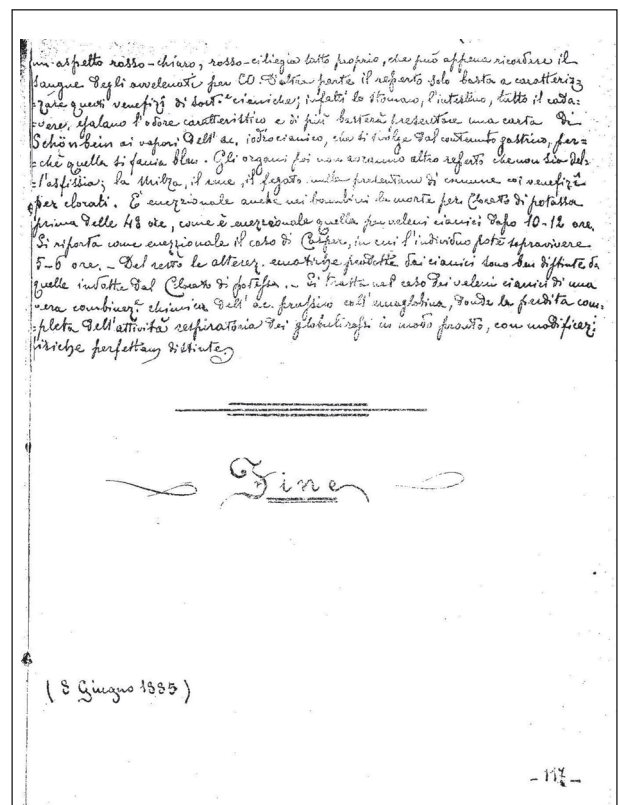 un aspetto rosso-chiaro, rosso-ciliegia tutto proprio, che può appena ricordare il
sangue degli avvelenati per CO. D'altra parte il reperto solo basta a caratteriz=
=zare questi venefizî di sost.ᵉ cianiche; infatti lo stomaco, l'intestino, tutto il cada=
=vere, esalano l'odore caratteristico e di più basterà presentare una carta di
Schönbein ai vapori dell'ac. idrocianico, che si svolge dal contenuto gastrico, per=
=chè quella si faccia bleu. Gli organi poi non avranno altro reperto che non sia del=
=l'asfissia; la milza, il rene, il fegato nulla presentano di comune coi venefizî
per clorati. È eccezionale anche nei bambini la morte per Clorato di potassa
prima delle 48 ore, come è eccezionale quella per veleni cianici dopo 10-12 ore.
Si riporta come eccezionale il caso di Casper, in cui l'individuo potè sopravivere
5-6 ore. - Del resto le alteraz. ematiche prodotte dai cianici sono ben distinte da
quelle indotte dal Clorato di potassa. - Si tratta nel caso dei veleni cianici di una
vera combinazᵉ chimica dell'ac. prussico coll'emoglobina, donde la perdita com=
=pleta dell'attività respiratoria dei globuli rossi in modo pronto, con modificaz.
fisiche perfettam distinte.
Fine
(8 Giugno 1885)
- 117 -